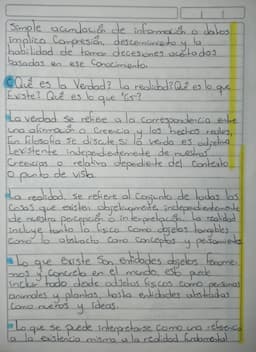 Simple acumulación de información o datos
implica Comprensión, discernimiento y la
habilidad de tomar decisiones acertadas
basadas en ese Conocimiento.
¿Qué es la Verdad? La realidad? Qué es lo que
Existe? Qué es lo que "Es"?
La verdad se refiere a la correspondencia entre
una afirmación o Creencia y los hechos reales,
En filosofía Se discute Si la verdad es objetiva
(existente independientemente de nuestras
Creencias o relativa dependiente del Contexto
o punto de vista.
La realidad, se refiere al Conjunto de todas las
Cosas que existen objetivamente, independientemente
de nuestra percepción o interpretación. La realidad
incluye tanto lo físico Como objetos tangibles
Como lo abstracto Como Conceptos y pensamientos
Lo que Existe Son entidades objetos fenóme-
nos y Concreto en el mundo, esto puede
incluir todo desde objetos físicos Como personas
animales y plantas, hasta entidades abstractas
Como números y ideas.
Lo que se puede interpretarse Como una referencia
a la existencia misma o la realidad fundamental